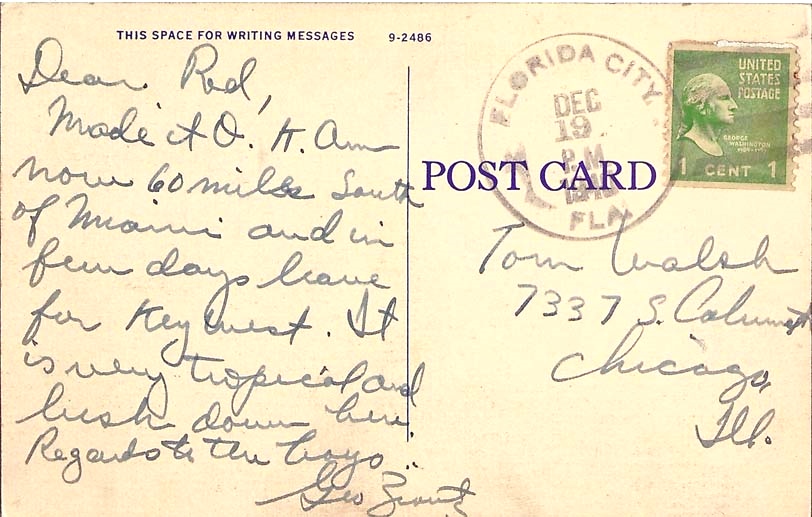 THIS SPACE FOR WRITING MESSAGES 9-2486
Dear Red,
Made it O.K. Am
now 60 miles South
of Miami and in
few days leave
for Key West. It
is very tropical and
lush down here.
Regards to the boys
Geo
FLORIDA CITY,
DEC
19
P.M
FLA.
UNITED
STATES
POSTAGE
GEORGE
WASHINGTON
1 CENT 1
POST CARD
Tom Walsh
7337 S. Calumet
Chicago,
Ill.